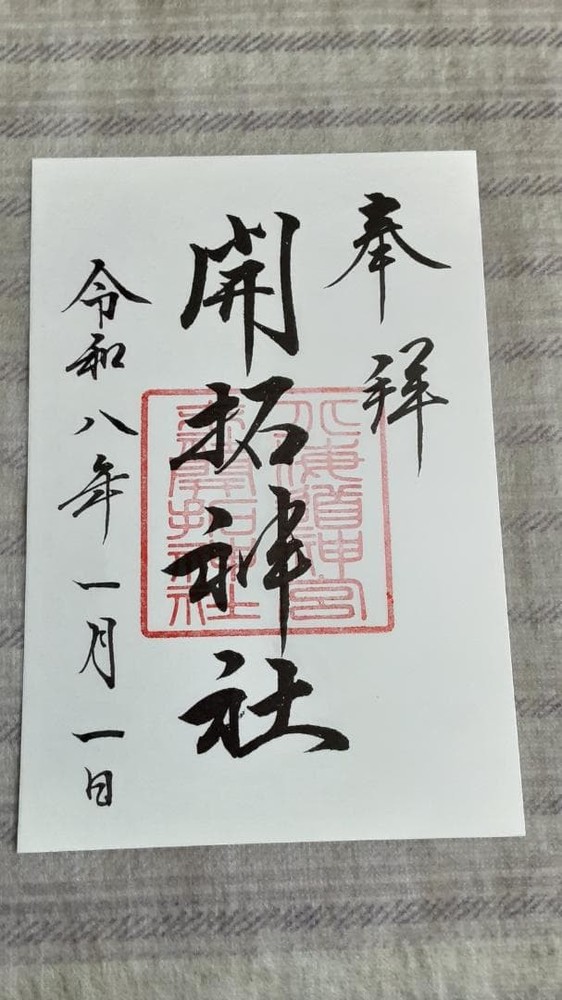 奉拝
開拓神社
北海道神宮
末社開拓神社
令和八年一月一日